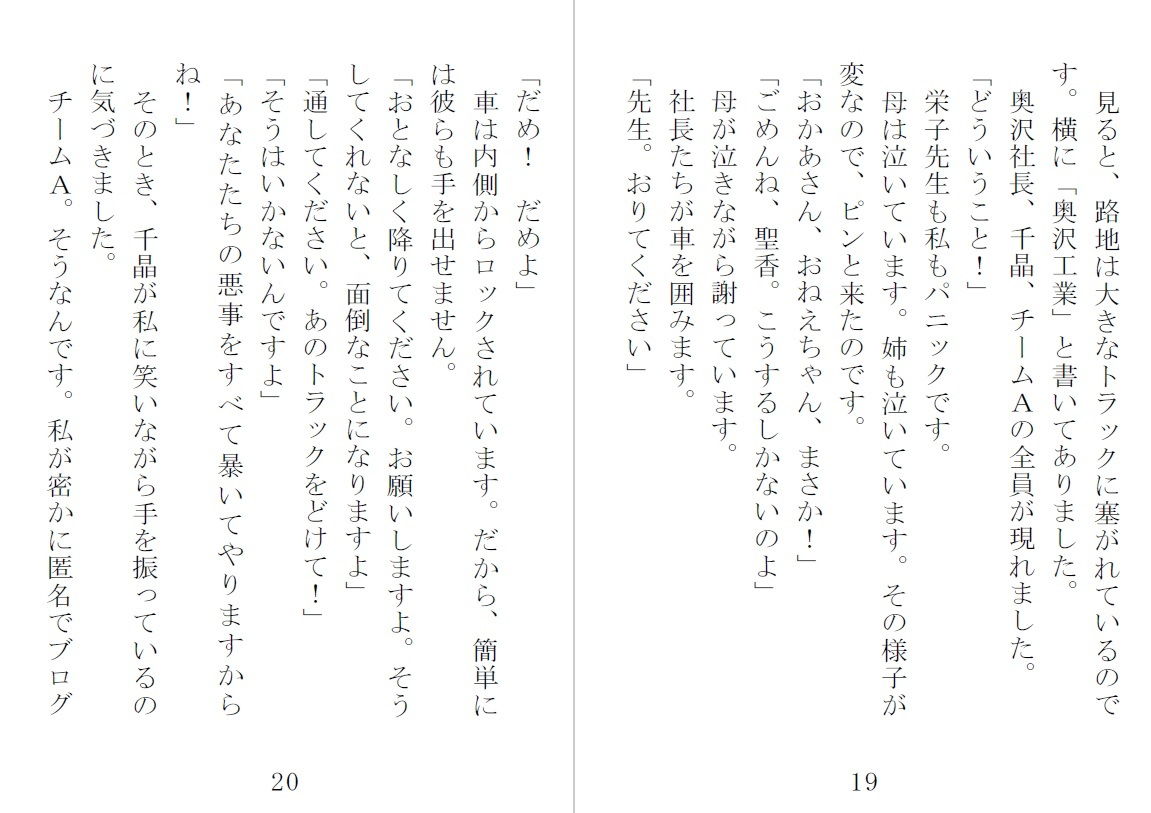 見ると、路地は大きなトラックに塞がれているので
す。横に「奥沢工業」と書いてありました。
　奥沢社長、千晶、チームＡの全員が現れました。
「どういうこと！」
　栄子先生も私もパニックです。
　母は泣いています。姉も泣いています。その様子が
変なので、ピンと来たのです。
「おかあさん、おねえちゃん、まさか！」
「ごめんね、聖香。こうするしかないのよ」
　母が泣きながら謝っています。
　社長たちが車を囲みます。
「先生。おりてください」
19
「だめ！　だめよ」
　車は内側からロックされています。だから、簡単に
は彼らも手を出せません。
「おとなしく降りてください。お願いしますよ。そう
してくれないと、面倒なことになりますよ」
「通してください。あのトラックをどけて！」
「そうはいかないんですよ」
「あなたたちの悪事をすべて暴いてやりますから
ね！」
　そのとき、千晶が私に笑いながら手を振っているの
に気づきました。
　チームＡ。そうなんです。私が密かに匿名でブログ
20